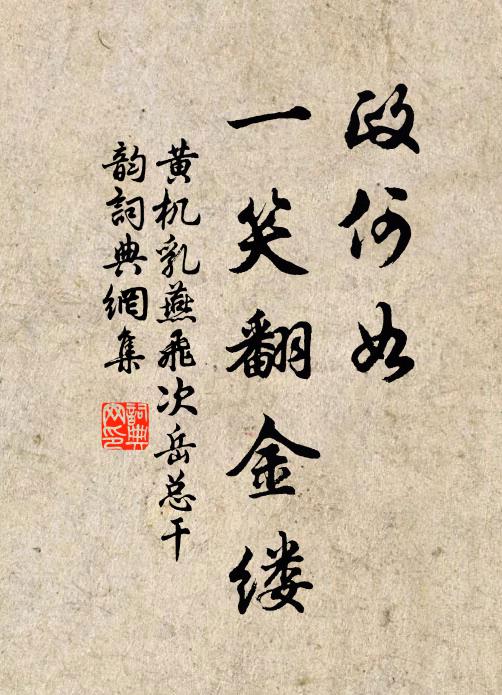 政何如
一笑翻金缕
黄机乳燕飞次岳总干
韵詞典網集
詞典网印